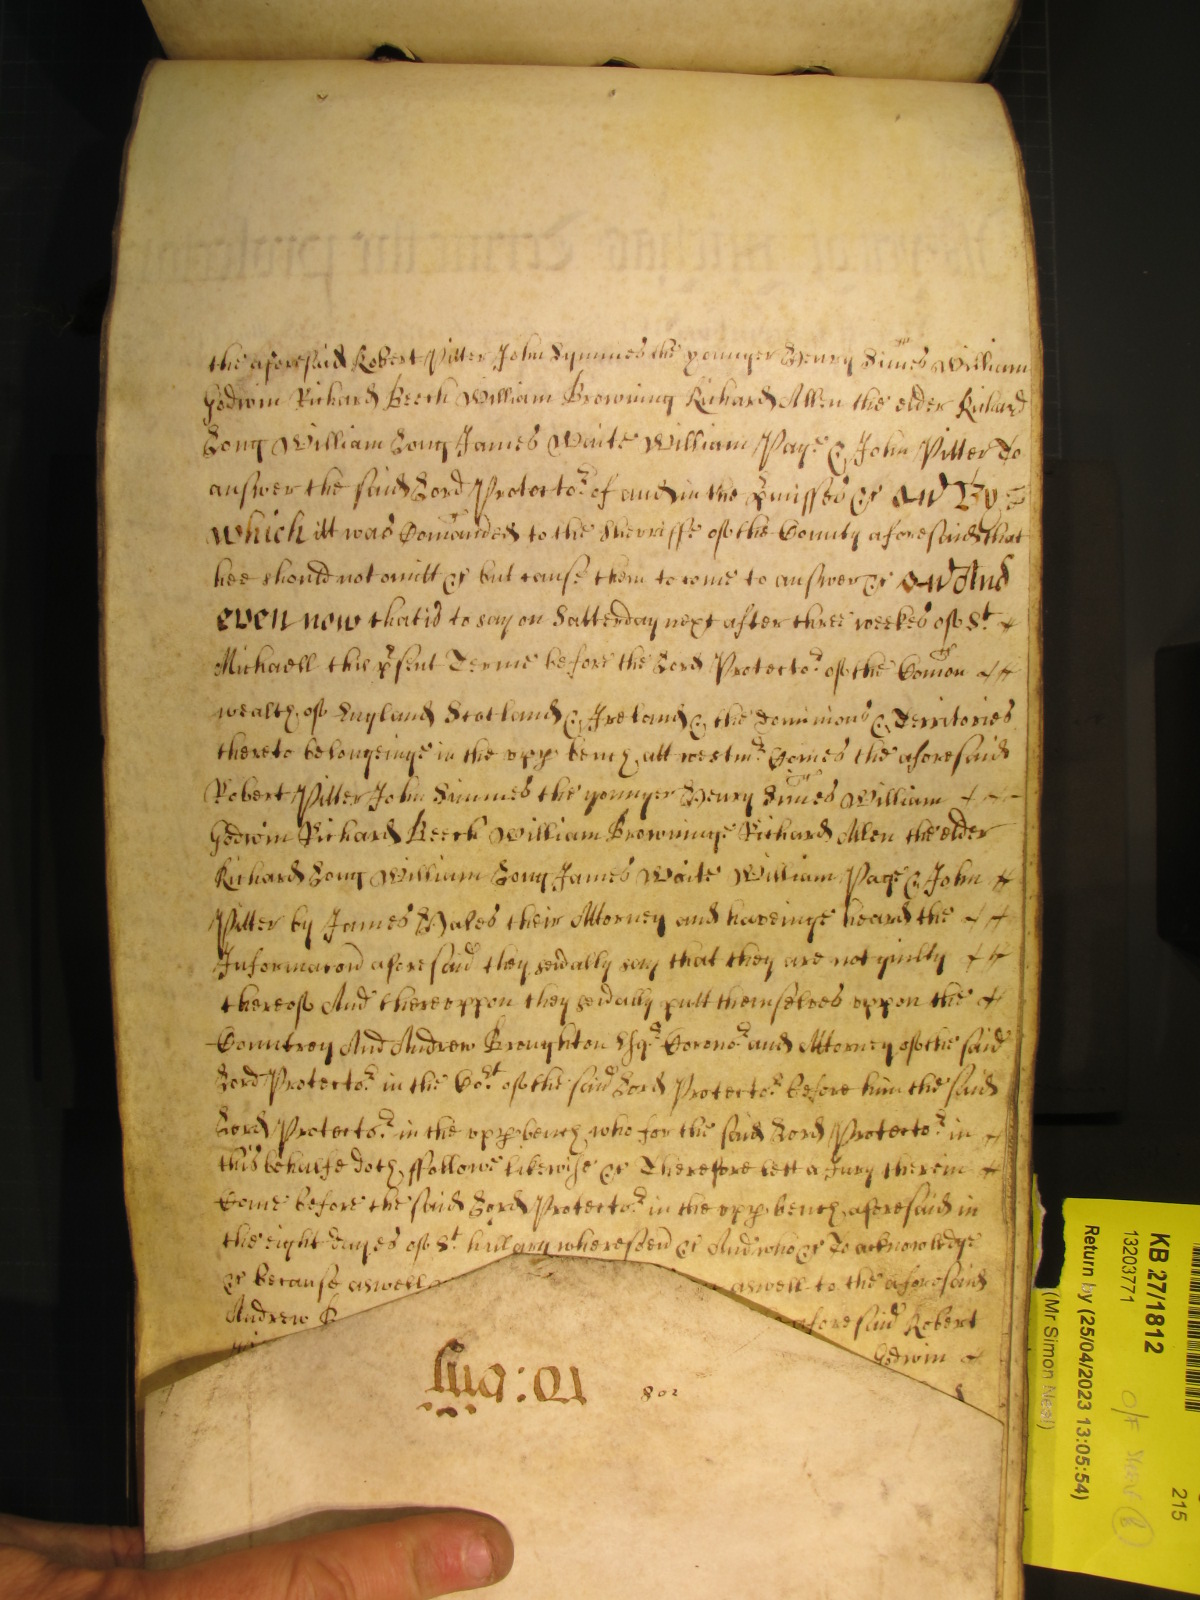 the aforesaid Robert Pitter John Symmes the younger Henry Simes William
Godwin Richard Beech William Browning Richard Allen the elder Richard
Long William Long James Waite William Page & John Pitter To
answer the said Lord Protector of and in the pmisses &c By
which itt was Comanded to the Sherriffe of the County aforesaid that
hee should not omitt &c but cause them to come to answer &c And
even now that is to say on Satterday next after three weekes of St
Michaell this psent Terme before the Lord Protector of the Comon
wealth of England Scotland & Ireland & the Dominions & Territories
thereto belongeinge in the upp bench att westmr Comes the aforesaid
Robert Pitter John Simmes the younger Henry Simes William
Godwin Richard Beech William Browninge Richard Allen the elder
Richard Long William Long James Waite William Page & John
Pitter by James Hales their Attorney and haveinge heard the
Informacon aforesaid they sevally say that they are not guilty
thereof And thereuppon they sevally putt themselves uppon the
Countrey And Andrew Broughton Esqr Coronor and Attorney of the said
Lord Protector in the Cort of the said Lord Protector before him the said
Lord Protector in the upp bench who for the said Lord Protector in
this behalfe doth ffollowe likewise &c Therefore lett a Jury therein
Come before the said Lord Protector in the upp bench aforesaid in
the eight dayes of St hillary &c And who &c To acknowledge
&c because aswell aswell to the aforesaid
Andrew B aforesaid Robert
Godwin
802
KB 27/1812
13203771
Return by (25/04/2023 13:05:54)
(Mr Simon Neal)
215